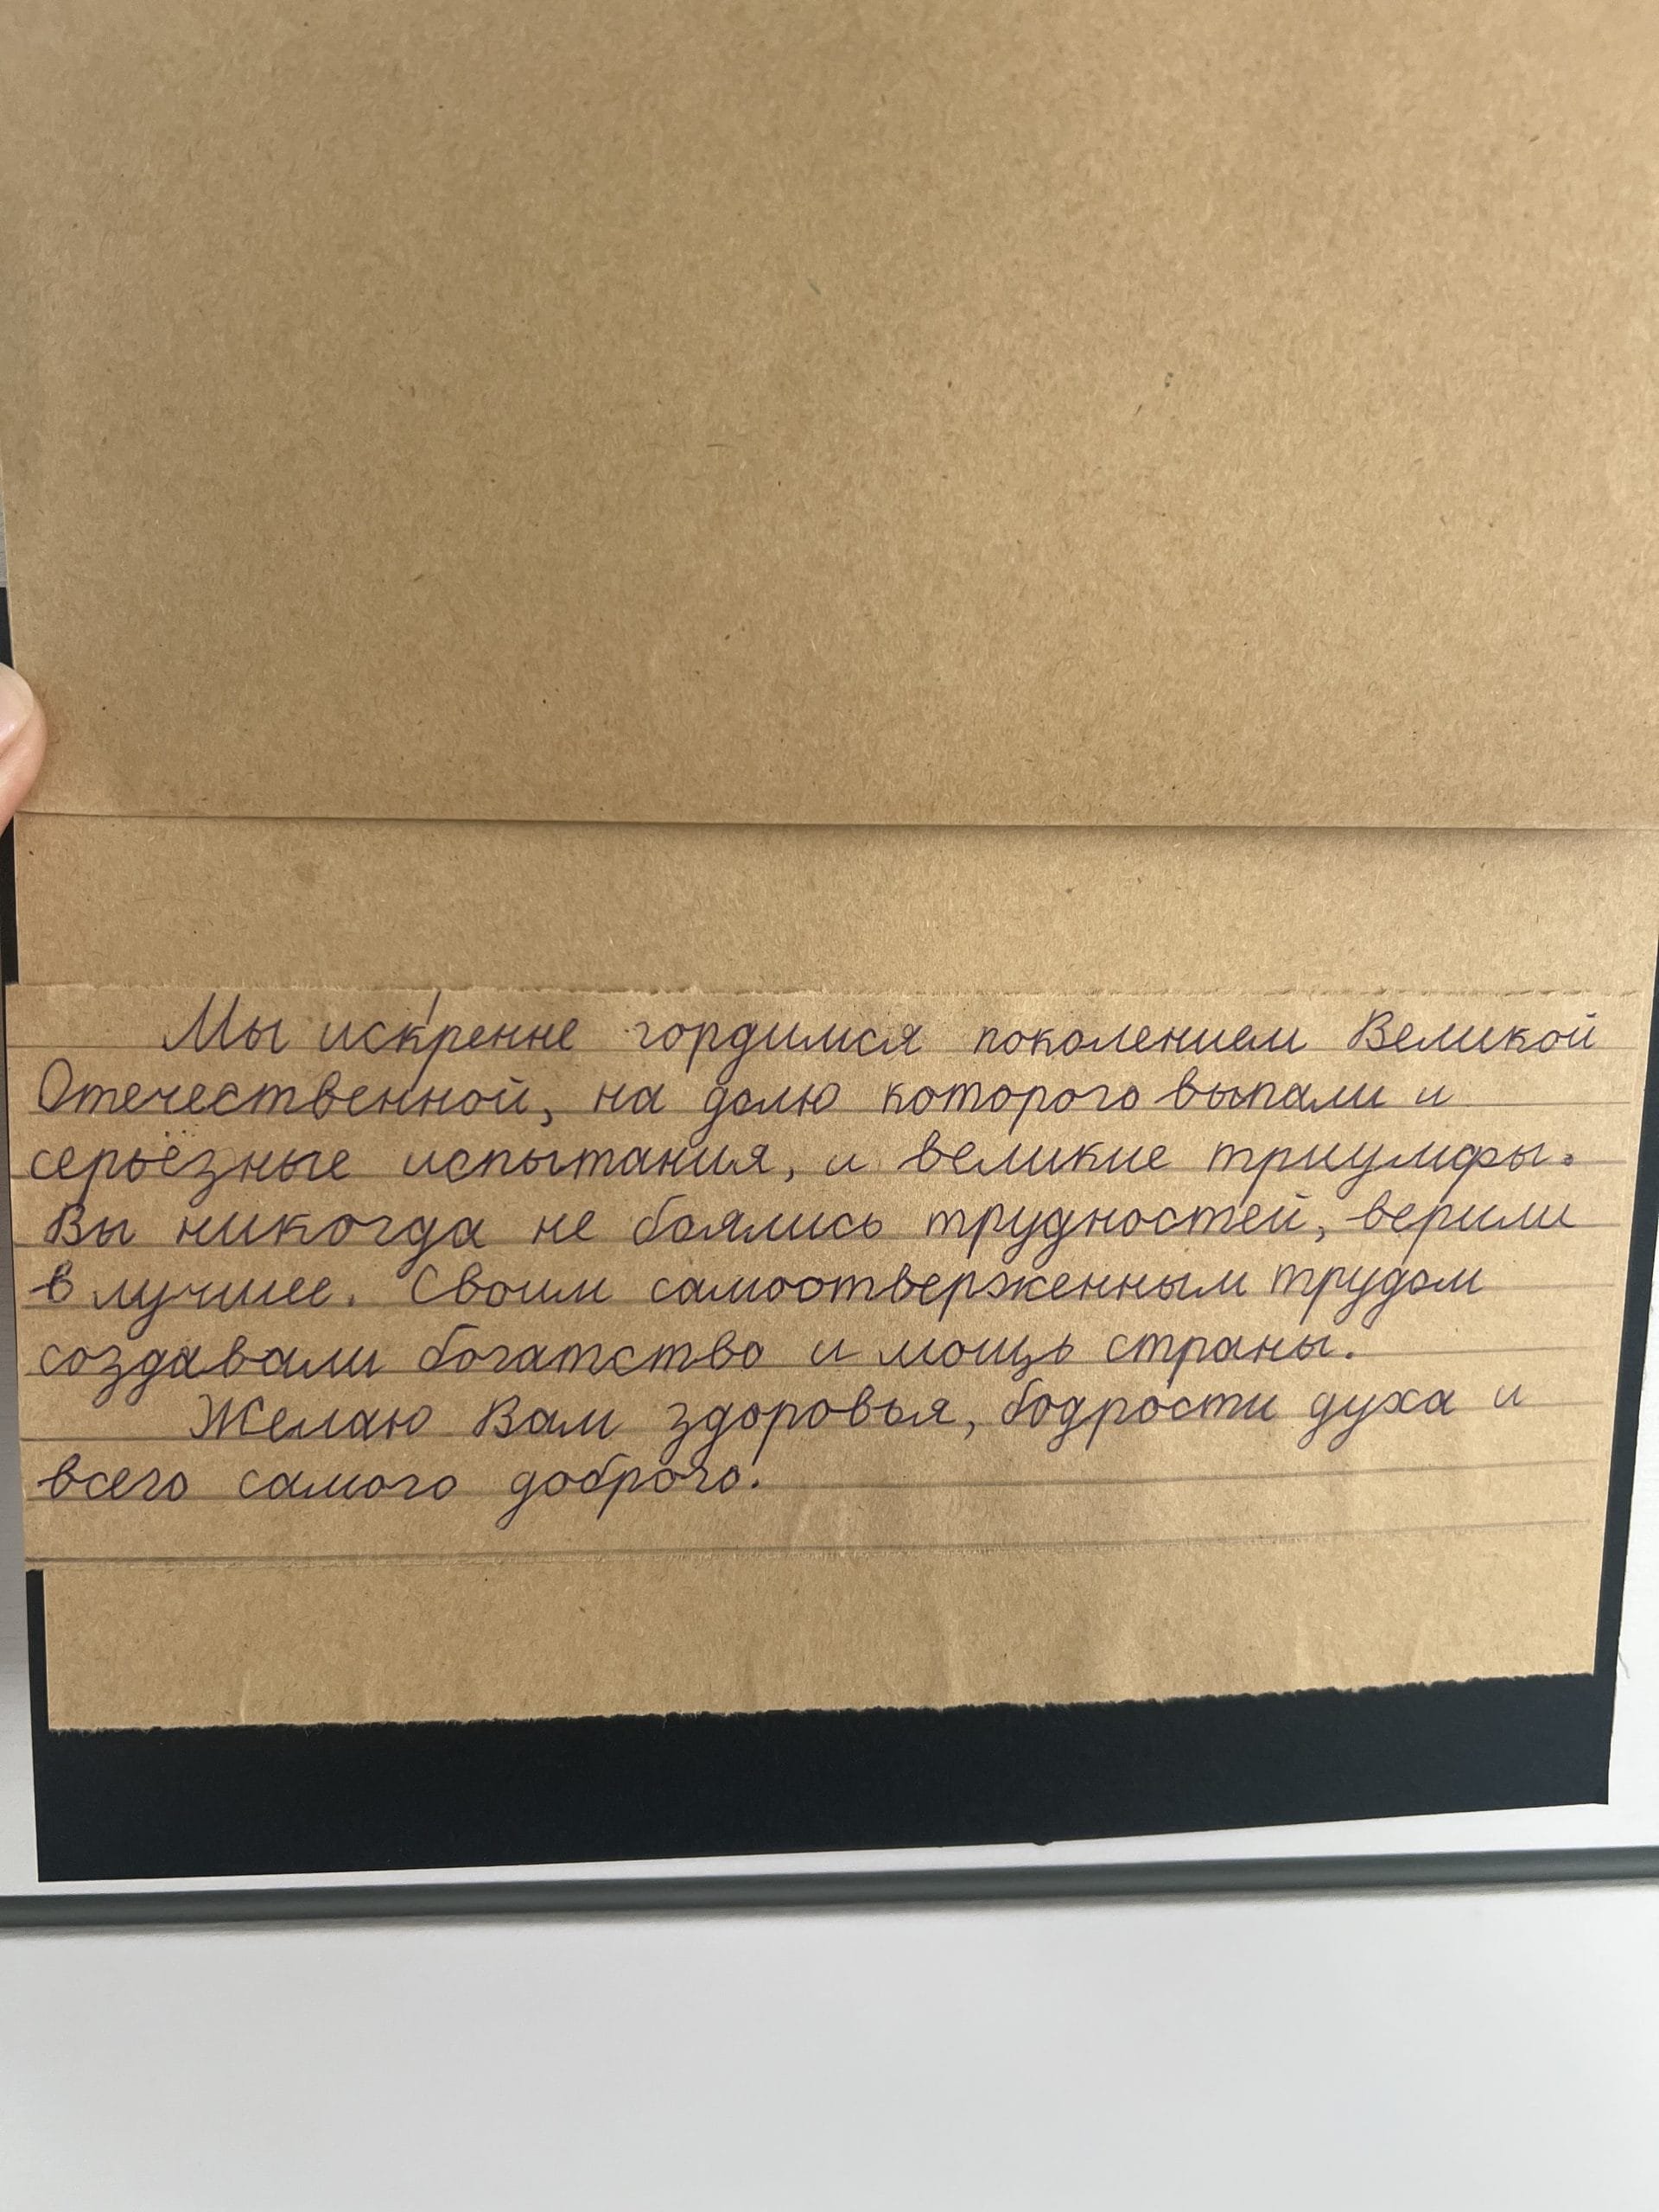 Мы искренне гордимся поколением Великой
Отечественной, на долю которого выпали и
серьёзные испытания, и великие триумфы.
Вы никогда не боялись трудностей, верили
в лучшее. Своим самоотверженным трудом
создавали богатство и мощь страны.
Желаю Вам здоровья, бодрости духа и
всего самого доброго.